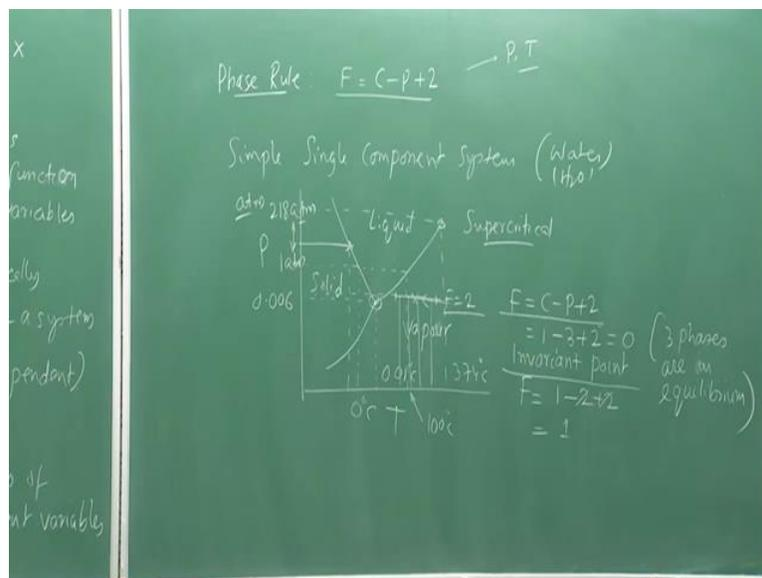 x
s
function
ariables
cally
a system
pendent)
of
nt variables
Phase Rule: F = C-P+2
P, T
Simple Single Component System (Water)
(H2O)
218atm
Liquid
Supercritical
P
1atm
Solid
0.006
F=2
Vapour
0.01°c
374°c
0°c
T
100°c
F = C-P+2
= 1-3+2 = 0
Invariant point
(3 phases
are in
equilibrium)
F = 1-2+2
= 1